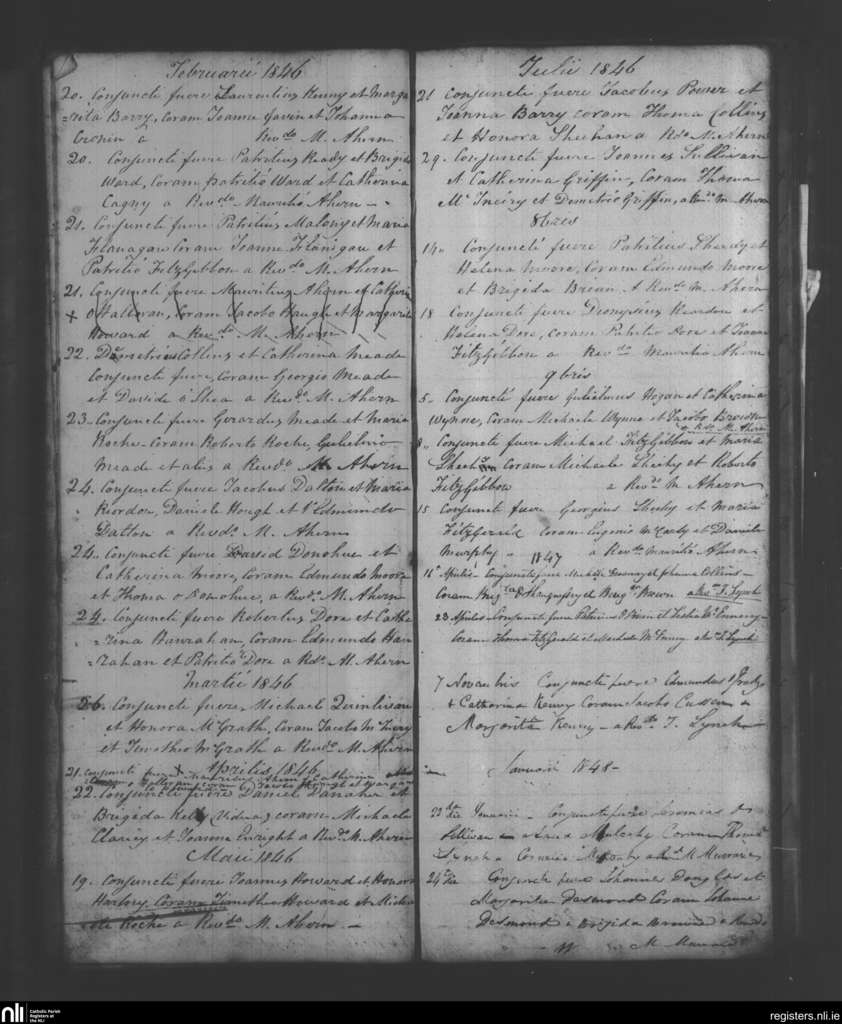 Februarii 1846
20. Conjuncti fuere Laurentius Kenny et Marga
=rita Barry, Coram Joanne Gavin et Johanna
Cronin a Revdo M. Ahern
20. Conjuncti fuere Patritius Ready et Brigida
Ward, Coram Patritio Ward et Catherina
Cagny a Revdo Mauritio Ahern
21. Conjuncti fuere Patritius Malony et Maria
Flanagan Coram Joanne Flanigan et
Patritio FitzGibbon a Revdo M. Ahern
21. Conjuncti fuere Mauritius Ahern et Catherin
x O'Halloran, Coram Jacobo Haugh et Margarita
Howard a Revdo M. Ahern
22. Demetrius Collins et Catherina Meade
Conjuncti fuere, Coram Georgio Meade
et Davide o Shea a Revdo M. Ahern
23. Conjuncti fuere Gerardus Meade et Maria
Roche. Coram Roberto Roche, Gulielmo
Meade et aliis a Revdo M. Ahern
24. Conjuncti fuere Jacobus Dalton et Maria
Riordon, Daniele Hough et Edmundo
Dalton a Revdo M. Ahern
24. Conjuncti fuere David Donohue et
Catherina Moore, Coram Edmundo Moore
et Thoma o Donohue, a Revdo M. Ahern
24. Conjuncti fuere Robertus Dore et Cathe
=rina Hanrahan, Coram Edmundo Han
=rahan et Patritio Dore a Rdo M. Ahern
Martii 1846
26. Conjuncti fuere, Michael Quinlivan
et Honora McGrath, Coram Jacobo
et Timotheo McGrath a Revdo M. Ahern
Aprilis 1846
21. Conjuncti fuere x Mauritius Ahern et Catherina
o Halloran Coram Jacobo Haugh et Margarita
22. Conjuncti fuere Daniel Danaher et
Brigida Kelly (Vidua) coram Michaele
Clancy et Joanna Enright a Revdo M. Ahern
Maii 1846
19. Conjuncti fuere Joannes Howard et Honora
Coram Timotheo Howard et
Roche a Revdo M. Ahern
Julii 1846
21 Conjuncti fuere Jacobus Power et
Joanna Barry coram Thoma Collins
et Honora Sheehan a Rdo M. Ahern
29. Conjuncti fuere Joannes Sullivan
et Catherina Griffin, Coram Thoma
et Demetrio Griffin, a Revdo M. Ahern
8bres
14. Conjuncti fuere Patritius Sheedy et
Helena Moore, Coram Edmundo Moore
et Brigida a Revdo M. Ahern
18 Conjuncti fuere Dionysius Reardon et
Helena Dore, coram Patritio Dore et Joanne
FitzGibbon a Revdo Mauritio Ahern
9bris
5. Conjuncti fuere Gulielmus Hogan et Catherina
Wynne, Coram Michaele Wynne et Jacobo
a Rdo M. Ahern
8. Conjuncti fuere Michael FitzGibbon et Maria
Sheehy Coram Michaele Sheehy et Roberto
FitzGibbon a Revdo M Ahern
15 Conjuncti fuere Georgius Sheehy et Maria
FitzGerald coram Eugenio et Daniele
Murphy a Revdo Mauritio Ahern
1847
16 Aprilis Conjuncti fuere Michael et Johanna Collins
Coram
23 Aprilis Conjuncti fuere Patricius O Brien et
Coram Thoma FitzGerald et Michaele a Revdo T. Lynch
7 Novembris Conjuncti fuere Edmundus
& Catharina Kenny Coram Jacobo Cussen &
Margarita Kenny a Revdo T. Lynch
Januarii 1848
22 die Januarii Conjuncti fuere Jeremias O
Sullivan Coram
Lynch
24 die Conjuncti fuere Johannes et
Margarita Desmond Coram Johanne
Desmond & Brigida
nli
Catholic Parish
Registers at
the NLI
registers.nli.ie